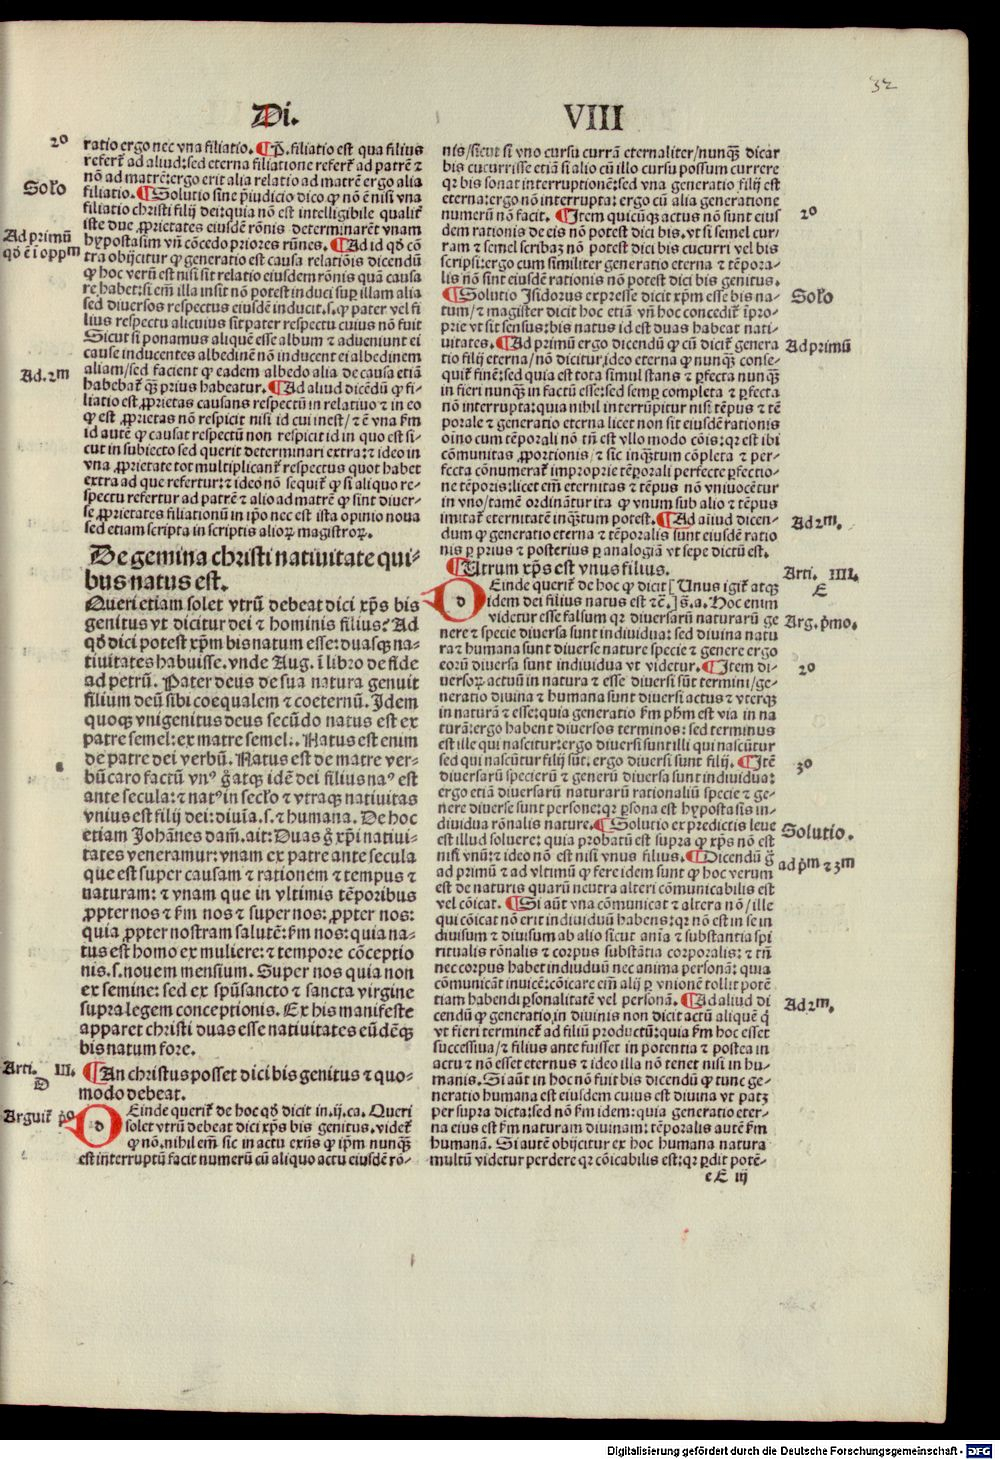 32
Di. VIII
ratio ergo nec vna filiatio. ¶ P̄. filiatio est qua filius
referr̃ ad aliud: sed eterna filiatione referr̃ ad patrē ⁊
nō ad matrē: ergo erit alia relatio ad matrē ergo alia
filiatio. ¶ Solutio sine p̄iudicio dico ꝙ nō ē nisi vna
filiatio christi filij dei: quia nō est intelligibile qualit̃
iste due ꝓprietates eiusdē rōnis determinarēt vnam
hypostasim vn̄ cōcedo priores rōnes. ¶ Ad id qd̄ cō
tra obijcitur ꝙ generatio est causa relatiōis dicendū
ꝙ hoc verū est nisi sit relatio eiusdem rōnis quā causa
re habet: si em̄ illa insit nō potest induci sup illam alia
sed diuersos respectus eiusdē inducit. s. ꝙ pater vel fi
lius respectu alicuius sit pater respectu cuius nō fuit
Sicut si ponamus aliquē esse album ⁊ adueniunt ei
cause inducentes albedinē nō inducent ei albedinem
aliam/sed facient ꝙ eadem albedo alia de causa etiā
habebat̃ qꝫ prius habeatur. ¶ Ad aliud dicēdū ꝙ fi-
liatio est ꝓprietas causans respectū in relatiuo ⁊ in eo
ꝙ est ꝓprietas nō respicit nisi id cui inest/⁊ ē vna fm̄
id autē ꝙ causat respectū non respicit id in quo est si-
cut in subiecto sed querit determinari extra: ⁊ ideo in
vna ꝓprietate tot multiplicant̃ respectus quot habet
extra ad que refertur: ⁊ ideo nō sequit̃ ꝙ si aliquo re-
spectu refertur ad patrē ⁊ alio ad matrē ꝙ sint diuer-
se ꝓprietates filiationū in ip̄o nec est ista opinio noua
sed etiam scripta in scriptis alioꝝ magistroꝝ.
De gemina christi natiuitate qui-
bus natus est.
Queri etiam solet vtrū debeat dici xp̄s bis
genitus vt dicitur dei ⁊ hominis filius? Ad
qd̄ dici potest xp̄m bis natum esse: duasqꝫ na-
tiuitates habuisse. vnde Aug. ī libro de fide
ad petrū. Pater deus de sua natura genuit
filium deū sibi coequalem ⁊ coeternū. Idem
quoqꝫ vnigenitus deus secūdo natus est ex
patre semel: ex matre semel. Natus est enim
de patre dei verbū. Natus est de matre ver-
bū caro factū vnꝰ g̊ atqꝫ idē dei filius naꝰ est
ante secula: ⁊ natꝰ in seclo ⁊ vtraqꝫ natiuitas
vnius est filij dei: diuīa. s. ⁊ humana. De hoc
etiam Johānes dam̄. ait: Duas g̊ xp̄i natiui-
tates veneramur: vnam ex patre ante secula
que est super causam ⁊ rationem ⁊ tempus ⁊
naturam: ⁊ vnam que in vltimis tēporibus
ꝓpter nos ⁊ fm̄ nos ⁊ super nos: ꝓpter nos:
quia ꝓpter nostram salutē: fm̄ nos: quia na-
tus est homo ex muliere: ⁊ tempore cōceptio
nis. s. nouem mensium. Super nos quia non
ex semine: sed ex spū sancto ⁊ sancta virgine
supra legem conceptionis. Ex his manifeste
apparet christi duas esse natiuitates eūdēqꝫ
bis natum fore.
¶ An christus posset dici bis genitus ⁊ quo-
modo debeat.
Deinde querit̃ de hoc qd̄ dicit in. ij. ca. Queri
solet vtrū debeat dici xp̄s bis genitus. videt̃
ꝙ nō. nihil em̄ sic in actu exn̄s ꝙ ip̄m nunqꝫ
est interruptū facit numerū cū aliquo actu eiusdē rō-
2º
Solō
Ad primū
qd̄ ē ī oppᵐ
Ad. 2ᵐ
Arti. III.
D
Arguit̃ pº
nis/sicut si vno cursu currā eternaliter/nunqꝫ dicar
bis cucurrisse etiā si alio cū illo cursu possum currere
qꝛ bis sonat interruptionē: sed vna generatio filij est
eterna: ergo nō interrupta: ergo cū alia generatione
numerū nō facit. ¶ Item quicūqꝫ actus nō sunt eius
dem rationis de eis nō potest dici bis. vt si semel cur-
ram ⁊ semel scribaꝫ nō potest dici bis cucurri vel bis
scripsi: ergo cum similiter generatio eterna ⁊ tēpora-
lis nō sint eiusdē rationis nō potest dici bis genitus.
¶ Solutio Isidorus expresse dicit xp̄m esse bis na-
tum/⁊ magister dicit hoc etiā vn̄ hoc concedit̃ īpro-
prie vt sit sensus: bis natus id est duas habeat nati-
uitates. ¶ Ad primū ergo dicendū ꝙ cū dicit̃ genera
tio filij eterna/nō dicitur ideo eterna ꝙ nunqꝫ conse-
quit̃ finē: sed quia est tota simul stans ⁊ ꝑfecta nunqꝫ
in fieri nunqꝫ in factū esse: sed semꝑ completa ⁊ ꝑfecta
nō interrupta: quia nihil interrūpitur nisi tēpus ⁊ tē
porale ⁊ generatio eterna licet non sit eiusdē rationis
oīno cum tēporali nō tn̄ est vllo modo cōis: qꝛ est ibi
cōmunitas ꝓportionis/⁊ sic inqꝫtum cōpleta ⁊ per-
fecta cōnumerat̃ improprie tēporali perfecte ꝑfectio-
ne tēporis: licet em̄ eternitas ⁊ tēpus nō vniuocētur
in vno/tamē ordinātur ita ꝙ vnum sub alio ⁊ tēpus
imitat̃ eternitatē inqꝫtum potest. ¶ Ad aliud dicen-
dum ꝙ generatio eterna ⁊ tēporalis sunt eiusdē ratio
nis ꝑ prius ⁊ posterius ꝑ analogiā vt sepe dictū est.
¶ Utrum xp̄s est vnus filius.
Deinde querit̃ de hoc ꝙ dicit [Unus igit̃ atqꝫ
idem dei filius natus est ⁊c̄.] S̄. a. Hoc enim
videtur esse falsum qꝛ diuersarū naturarū ge
nere ⁊ specie diuersa sunt indiuidua: sed diuina natu
ra ⁊ humana sunt diuerse nature specie ⁊ genere ergo
eorū diuersa sunt indiuidua vt videtur. ¶ Item di-
uersoꝝ actuū in natura ⁊ esse diuersi sūt termini/ge-
neratio diuina ⁊ humana sunt diuersi actus ⁊ vterqꝫ
in naturā ⁊ esse: quia generatio fm̄ phm̄ est via in na
turā: ergo habent diuersos terminos: sed terminus
est ille qui nascitur: ergo diuersi sunt illi qui nascūtur
sed qui nascūtur filij sūt. ergo diuersi sunt filij. ¶ Itē
diuersarū specierū ⁊ generū diuersa sunt indiuidua:
ergo etiā diuersarū naturarū rationaliū specie ⁊ ge-
nere diuerse sunt persone: qꝛ ꝑsona est hypostasis in-
diuidua rōnalis nature. ¶ Solutio ex predictis leue
est illud soluere: quia probatū est supra ꝙ xp̄s nō est
nisi vnū: ⁊ ideo nō est nisi vnus filius. ¶ Dicendū g̊
ad primū ⁊ ad vltimū ꝙ fere idem sunt ꝙ hoc verum
est de naturis quarū neutra alteri cōmunicabilis est
vel cōicat. ¶ Si aūt vna cōmunicat ⁊ altera nō/ille
qui cōicat nō erit indiuiduū habens: qꝛ nō est in se in
diuisum ⁊ diuisum ab alio sicut anīa ⁊ substantia spi
ritualis rōnalis ⁊ corpus substātia corporalis: ⁊ tn̄
nec corpus habet indiuiduū nec anima personā: quia
cōmunicāt inuicē: cōicare em̄ alij ꝑ vnionē tollit potē
tiam habendi ꝑsonalitatē vel personā. ¶ Ad aliud di
cendū ꝙ generatio in diuinis non dicit actū aliquē q̄
vt fieri terminet̃ ad filiū productū: quia fm̄ hoc esset
successiua/⁊ filius ante fuisset in potentia ⁊ postea in
actu ⁊ nō esset eternus ⁊ ideo illa nō tenet nisi in hu-
manis. Si aūt in hoc nō fuit bis dicendū ꝙ tunc ge-
neratio humana est eiusdem cuius est diuina vt patꝫ
per supra dicta: sed nō fm̄ idem: quia generatio eter-
na eius est fm̄ naturam diuinam: tēporalis autē fm̄
humanā. Si autē obijcitur ex hoc humana natura
multū videtur perdere qꝛ cōicabilis est: qꝛ ꝑdit potē-
2º
Solō
Ad primū
Ad 2ᵐ.
Arti. IIII.
E
Arg. p̄mo.
2º
3º
Solutio.
ad p̄m ⁊ 3m
Ad 2ᵐ.
e E iij
Digitalisierung gefördert durch die Deutsche Forschungsgemeinschaft - DFG